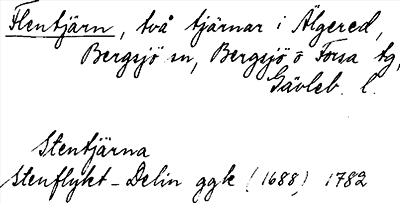 Flentjärn, två tjärnar i Älgered,
Bergsjö sn, Bergsjö o Forsa tg,
Gävleb. l.
Stentjärna
Stenflykt - Delin ggk (1688) 1782